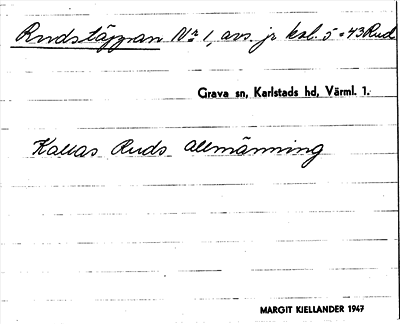 Rudstäppan Nr 1, avs. jr kal. 5 = 43 Rud
Grava sn, Karlstads hd, Värml. l.
Kallas Ruds allmänning
MARGIT KJELLANDER 1947